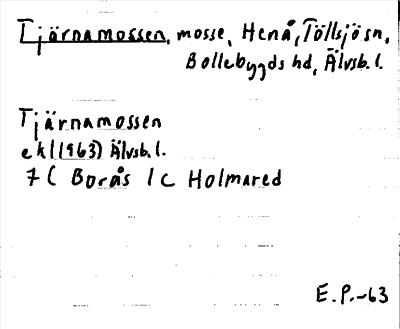 Tjärnamossen, mosse, Henå, Töllsjö sn,
Bollebygds hd, Älvsb.l.
Tjärnamossen
ekl (1963) Älvsb.l.
7C Borås 1c Holmared
E.P.-63